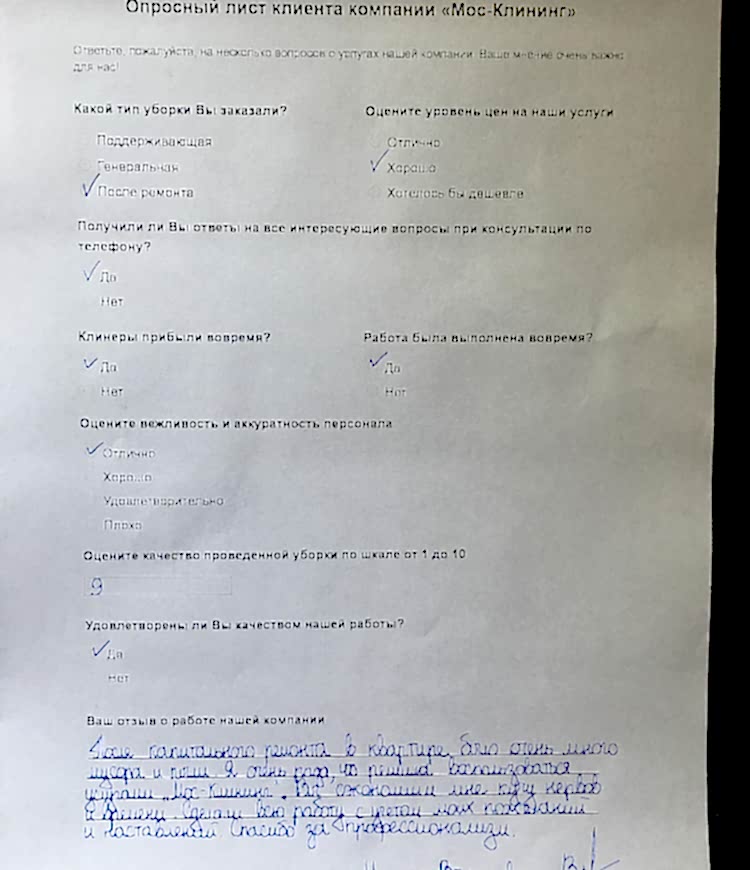 Опросный лист клиента компании «Мос-Клининг»
Ответьте, пожалуйста, на несколько вопросов о услугах нашей компании. Ваше мнение очень важно
для нас!
Какой тип уборки Вы заказали?
Поддерживающая
Генеральная
После ремонта
Оцените уровень цен на наши услуги
Отлично
Хорошо
Хотелось бы дешевле
Получили ли Вы ответы на все интересующие вопросы при консультации по
телефону?
Да
Нет
Клинеры прибыли вовремя?
Да
Нет
Работа была выполнена вовремя?
Да
Нет
Оцените вежливость и аккуратность персонала
Отлично
Хорошо
Удовлетворительно
Плохо
Оцените качество проведенной уборки по шкале от 1 до 10
9
Удовлетворены ли Вы качеством нашей работы?
Да
Нет
Ваш отзыв о работе нашей компании
После капитального ремонта в квартире было очень много
мусора и пыли. Я очень рада, что решила воспользоваться
услугами „Мос-Клининг". Вы сэкономили мне кучу нервов
и времени. Сделали всю работу с учетом моих пожеланий
и наставлений. Спасибо за профессионализм.